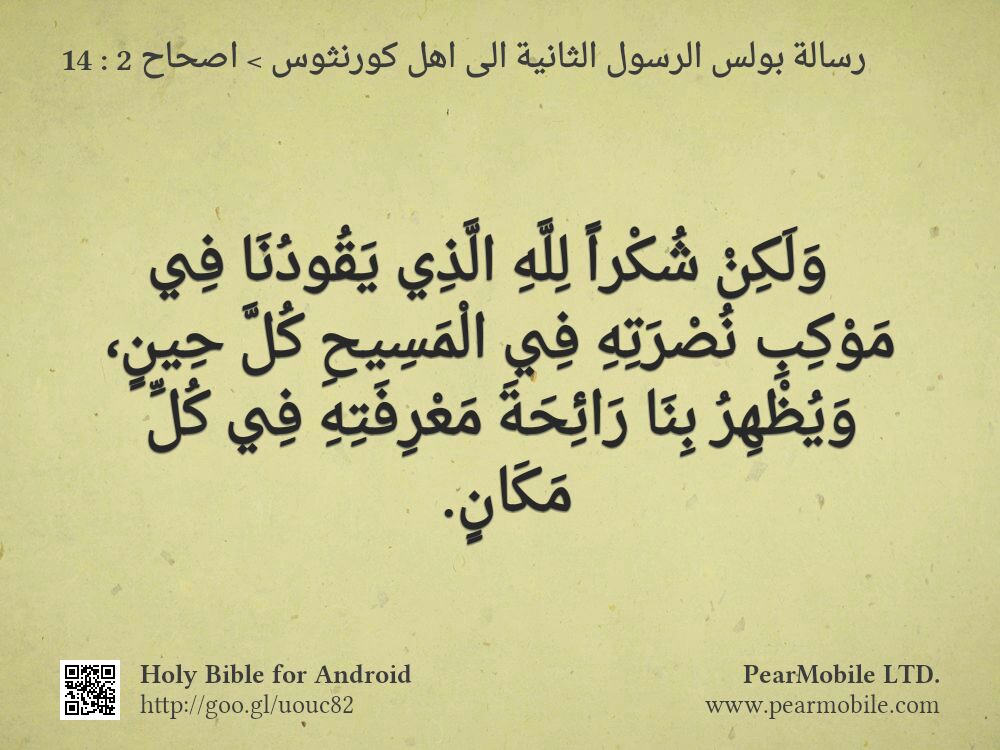 رسالة بولس الرسول الثانية الى اهل كورنثوس > اصحاح 2 : 14
وَلَكِنْ شُكْراً لِلَّهِ الَّذِي يَقُودُنَا فِي
مَوْكِبِ نُصْرَتِهِ فِي الْمَسِيحِ كُلَّ حِينٍ،
وَيُظْهِرُ بِنَا رَائِحَةَ مَعْرِفَتِهِ فِي كُلِّ
مَكَانٍ.
Holy Bible for Android
http://goo.gl/uouc82
PearMobile LTD.
www.pearmobile.com